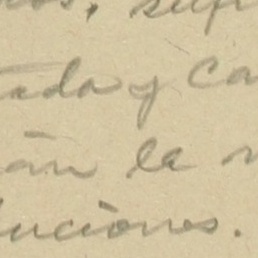 os, sup
tada y Ca
án la n
luciones.